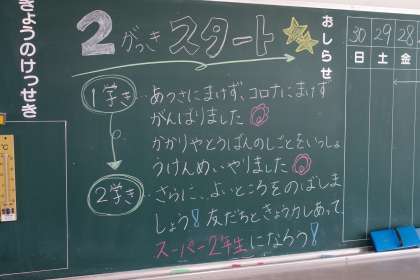 きょうのけっせき
2がっき スタート
おしらせ
30 29 28
日 土 金
1学き…あつさにまけず、コロナにまけず
がんばりました
かかりやとうばんのしごとをいっしょ
うけんめい、やりました
2学き…さらに、よいところをのばしま
しょう!友だちときょう力しあって、
スーパー2年生になろう!